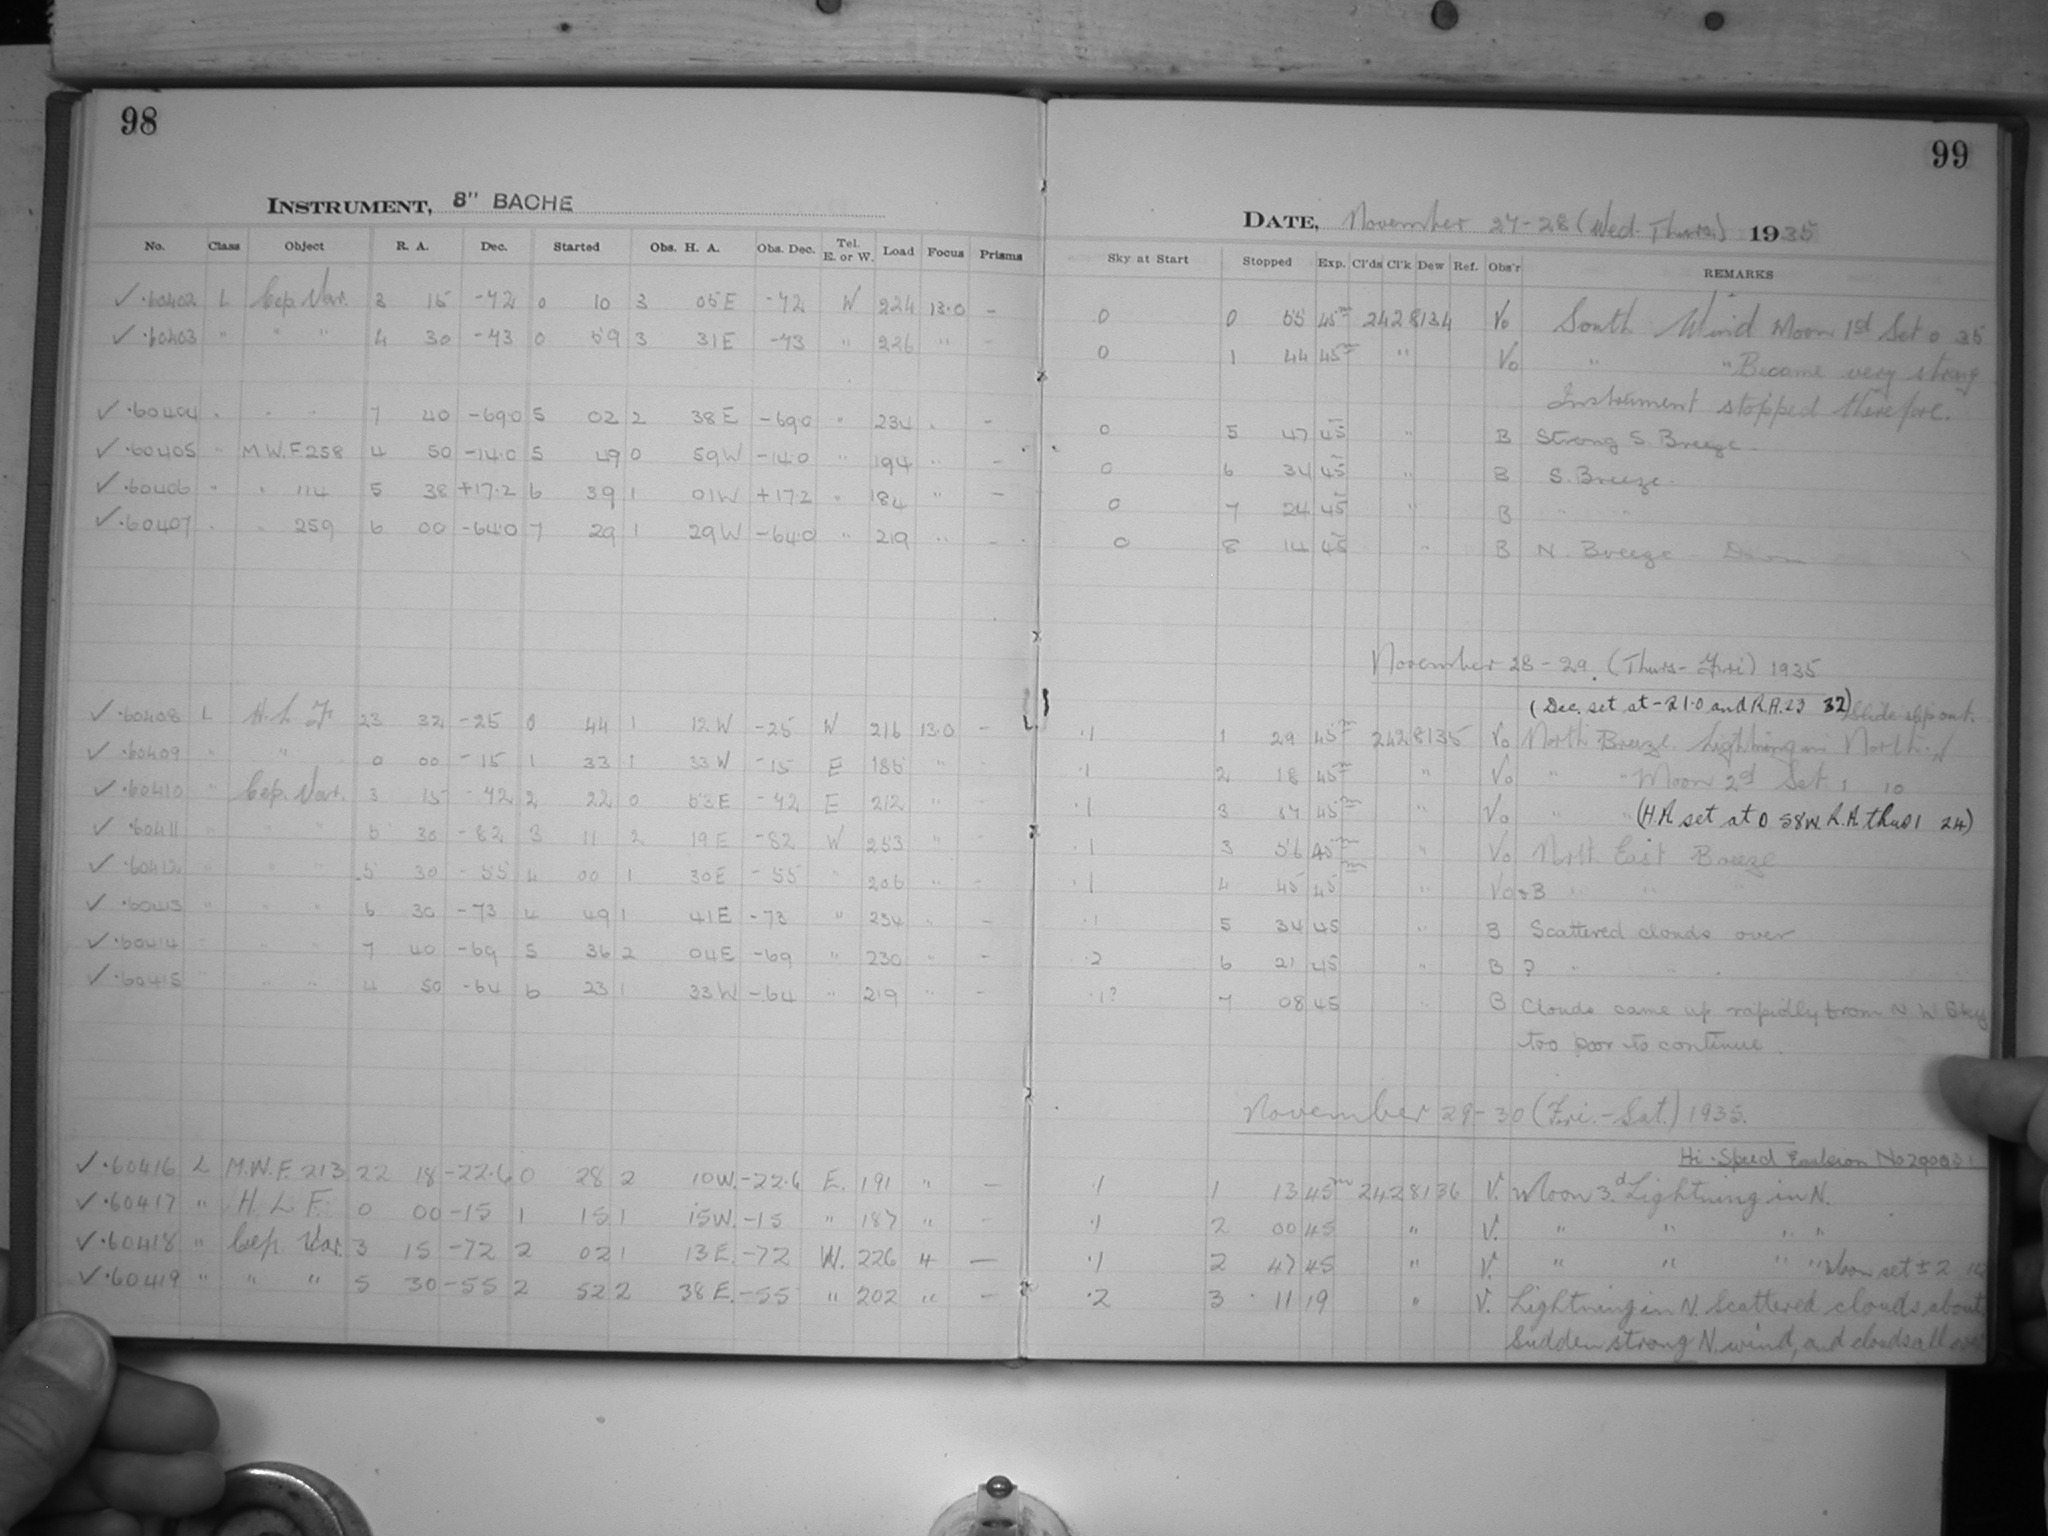 98
INSTRUMENT, 8" BACHE
No. Class Object R. A. Dec. Started Obs. H. A. Obs. Dec. Tel. E. or W. Load Focus Prisms
✓ ·60402 L Cep. Var. 3 15 -72 0 10 3 05 E -72 W 224 13.0 -
✓ ·60403 " " " 4 30 -73 0 59 3 31 E -73 " 226 " -
✓ ·60404 " " " 7 40 -69.0 5 02 2 38 E -69.0 " 234 " -
✓ ·60405 " M.W.F 258 4 50 -14.0 5 49 0 59 W -14.0 " 194 " -
✓ ·60406 " " 114 5 38 +17.2 6 39 1 01 W +17.2 " 184 " -
✓ ·60407 " " 259 6 00 -64.0 7 29 1 29 W -64.0 " 219 " -
✓ ·60408 L H. L. F. 23 32 -25 0 44 1 12 W -25 W 216 13.0 -
✓ ·60409 " " 0 00 -15 1 33 1 33 W -15 E 185 " -
✓ ·60410 " Cep. Var. 3 15 -42 2 22 0 53 E -42 E 212 " -
✓ ·60411 " " " 5 30 -82 3 11 2 19 E -82 W 253 " -
✓ ·60412 " " " 5 30 -55 4 00 1 30 E -55 " 206 " -
✓ ·60413 " " " 6 30 -73 4 49 1 41 E -73 " 234 " -
✓ ·60414 " " " 7 40 -69 5 36 2 04 E -69 " 230 " -
✓ ·60415 " " " 4 50 -64 6 23 1 33 W -64 " 219 " -
✓ ·60416 L M.W.F. 213 22 18 -22.6 0 28 2 10 W. -22.6 E. 191 " -
✓ ·60417 " H. L. F. 0 00 -15 1 15 1 15 W. -15 " 187 " -
✓ ·60418 " Cep. Var. 3 15 -72 2 02 1 13 E. -72 W. 226 " -
✓ ·60419 " " " 5 30 -55 2 52 2 38 E. -55 " 202 " -
99
DATE, November 27-28 (Wed. Thurs.) 1935
Sky at Start Stopped Exp. Cl'ds Cl'k Dew Ref. Obs'r REMARKS
0 0 55 45m 2428134 Vo South Wind Moon 1st Set 0 35
0 1 44 45m " Vo " " Became very strong
Instrument stopped therefore.
0 5 47 45 " B Strong S. Breeze
0 6 34 45 " B S. Breeze.
0 7 24 45 " B " "
0 8 14 45 " B N. Breeze Dawn
November 28-29. (Thurs-Fri) 1935
(Dec. set at -21.0 and R.A. 23 32) Slide slip out.
·1 1 29 45m 2428135 Vo North Breeze. Lightning in North.
·1 2 18 45m " Vo " " Moon 2d Set 1 10
·1 3 07 45m " Vo " " (H.A set at 0 58W R.A thus 1 24)
·1 3 56 45m " Vo North East Breeze
·1 4 45 45m " Vo & B " " "
·1 5 34 45 " B Scattered clouds over
·2 6 21 45 " B ? " " "
·1? 7 08 45 " B Clouds came up rapidly from N W Sky
too poor to continue.
November 29-30 (Fri.-Sat.) 1935.
Hi-Speed Emulsion No
·1 1 13 45m 2428136 V. Moon 3.d Lightning in N.
·1 2 00 45 " V. " " " "
·1 2 47 45 " V. " " " " Moon set ± 2
·2 3 11 19 " V. Lightning in N. Scattered clouds about
Sudden strong N. wind, and clouds all over